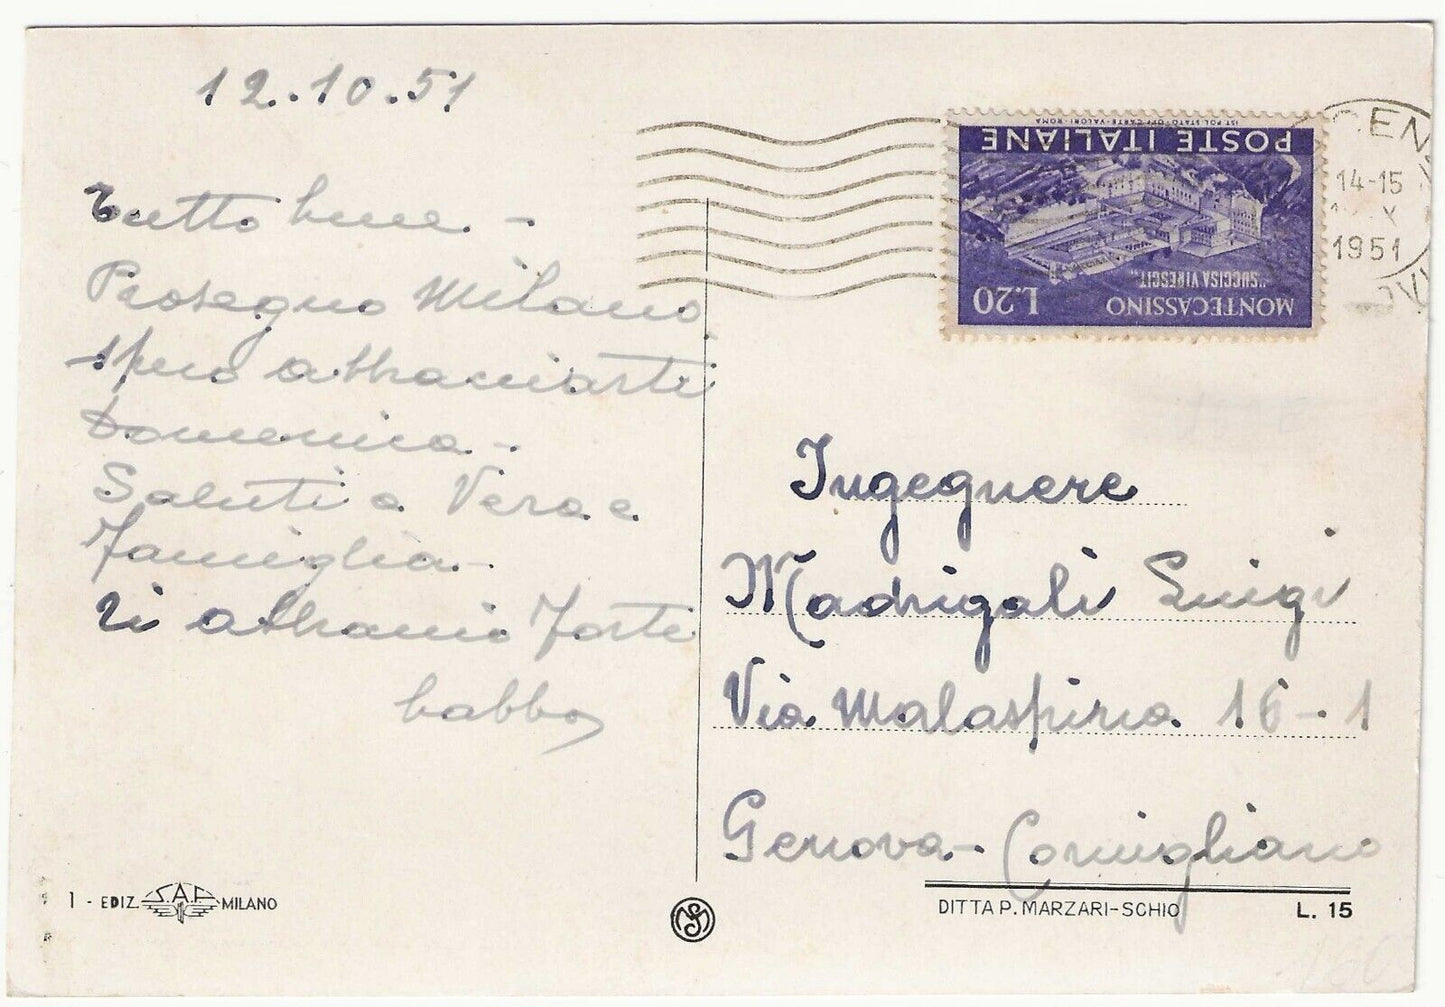 12.10.51
Tutto bene -
Proseguo Milano
spero abbracciarti
Domenica -
Saluti a Vera e
Famiglia -
Ti abbraccio forte
babbo
1 - EDIZ. S.A.F. MILANO
POSTE ITALIANE
IST. POL. STATO - OFF. CARTE-VALORI - ROMA
MONTECASSINO
"SUCCISA VIRESCIT"
L.20
14-15
X
1951
Ingegnere
Madrigali Luigi
Via Malaspina 16-1
Genova - Cornigliano
DITTA P. MARZARI-SCHIO
L. 15